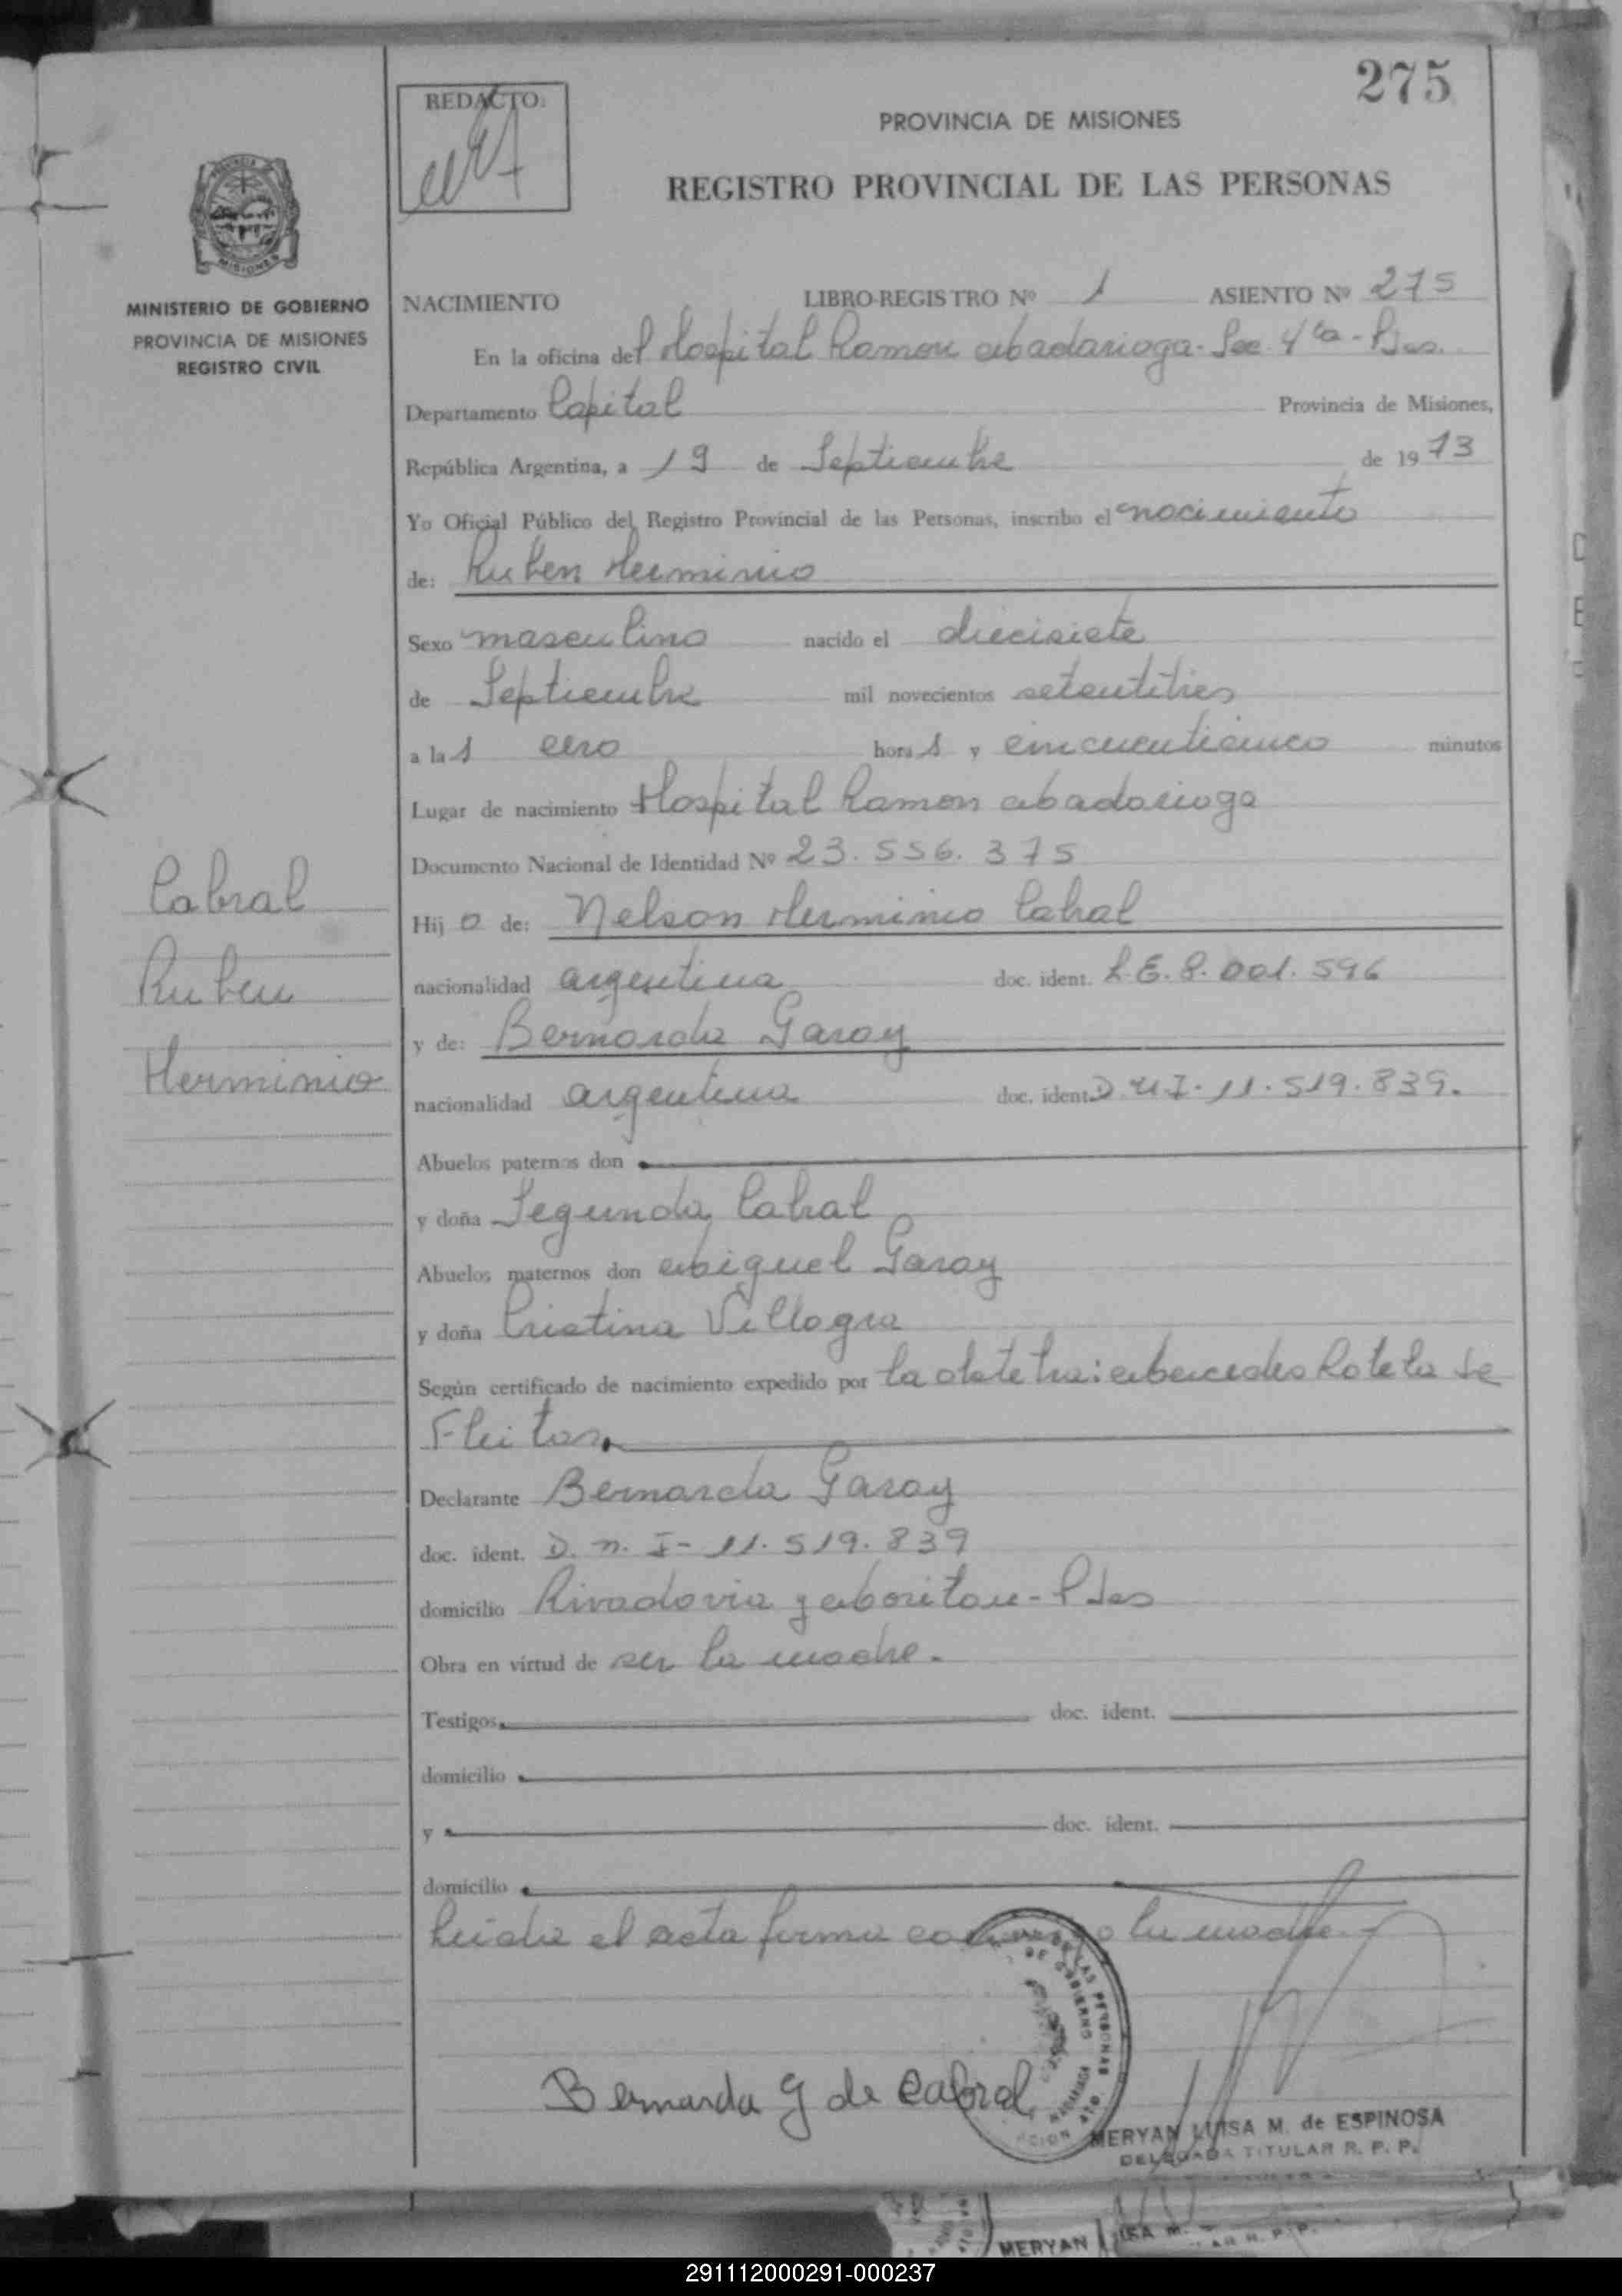 275
REDACTO:
PROVINCIA DE MISIONES
REGISTRO PROVINCIAL DE LAS PERSONAS
MISIONES
MINISTERIO DE GOBIERNO
PROVINCIA DE MISIONES
REGISTRO CIVIL
NACIMIENTO LIBRO-REGISTRO Nº 1 ASIENTO Nº 275
En la oficina del Hospital Ramon Madariaga - Sec. 4ta - Pdas.
Departamento Capital Provincia de Misiones,
República Argentina, a 19 de Septiembre de 1973
Yo Oficial Público del Registro Provincial de las Personas, inscribo el nacimiento
de: Ruben Herminio
Sexo masculino nacido el diecisiete
de Septiembre mil novecientos setentitres
a las cero horas y cincuenticinco minutos
Lugar de nacimiento Hospital Ramon Madariaga
Documento Nacional de Identidad Nº 23.556.375
Cabral
Ruben
Herminio
Hijo de: Nelson Herminio Cabral
nacionalidad argentina doc. ident. L.E. 8.001.596
y de: Bernarda Garay
nacionalidad argentina doc. ident. D.N.I- 11.519.839.
Abuelos paternos don
y doña Segunda Cabral
Abuelos maternos don Miguel Garay
y doña Cristina Villagra
Según certificado de nacimiento expedido por la obstetra: Mercedes Rotela de
Fleitas.
Declarante Bernarda Garay
doc. ident. D.N.I- 11.519.839
domicilio Rivadavia y - Pdas
Obra en virtud de ser la madre.
Testigos doc. ident.
domicilio
y doc. ident.
domicilio
Leida el acta firma conmigo la madre.
Bernarda G de Cabral
MERYAN LUISA M. de ESPINOSA
DELEGADA TITULAR R. P. P.
MERYAN
291112000291-000237